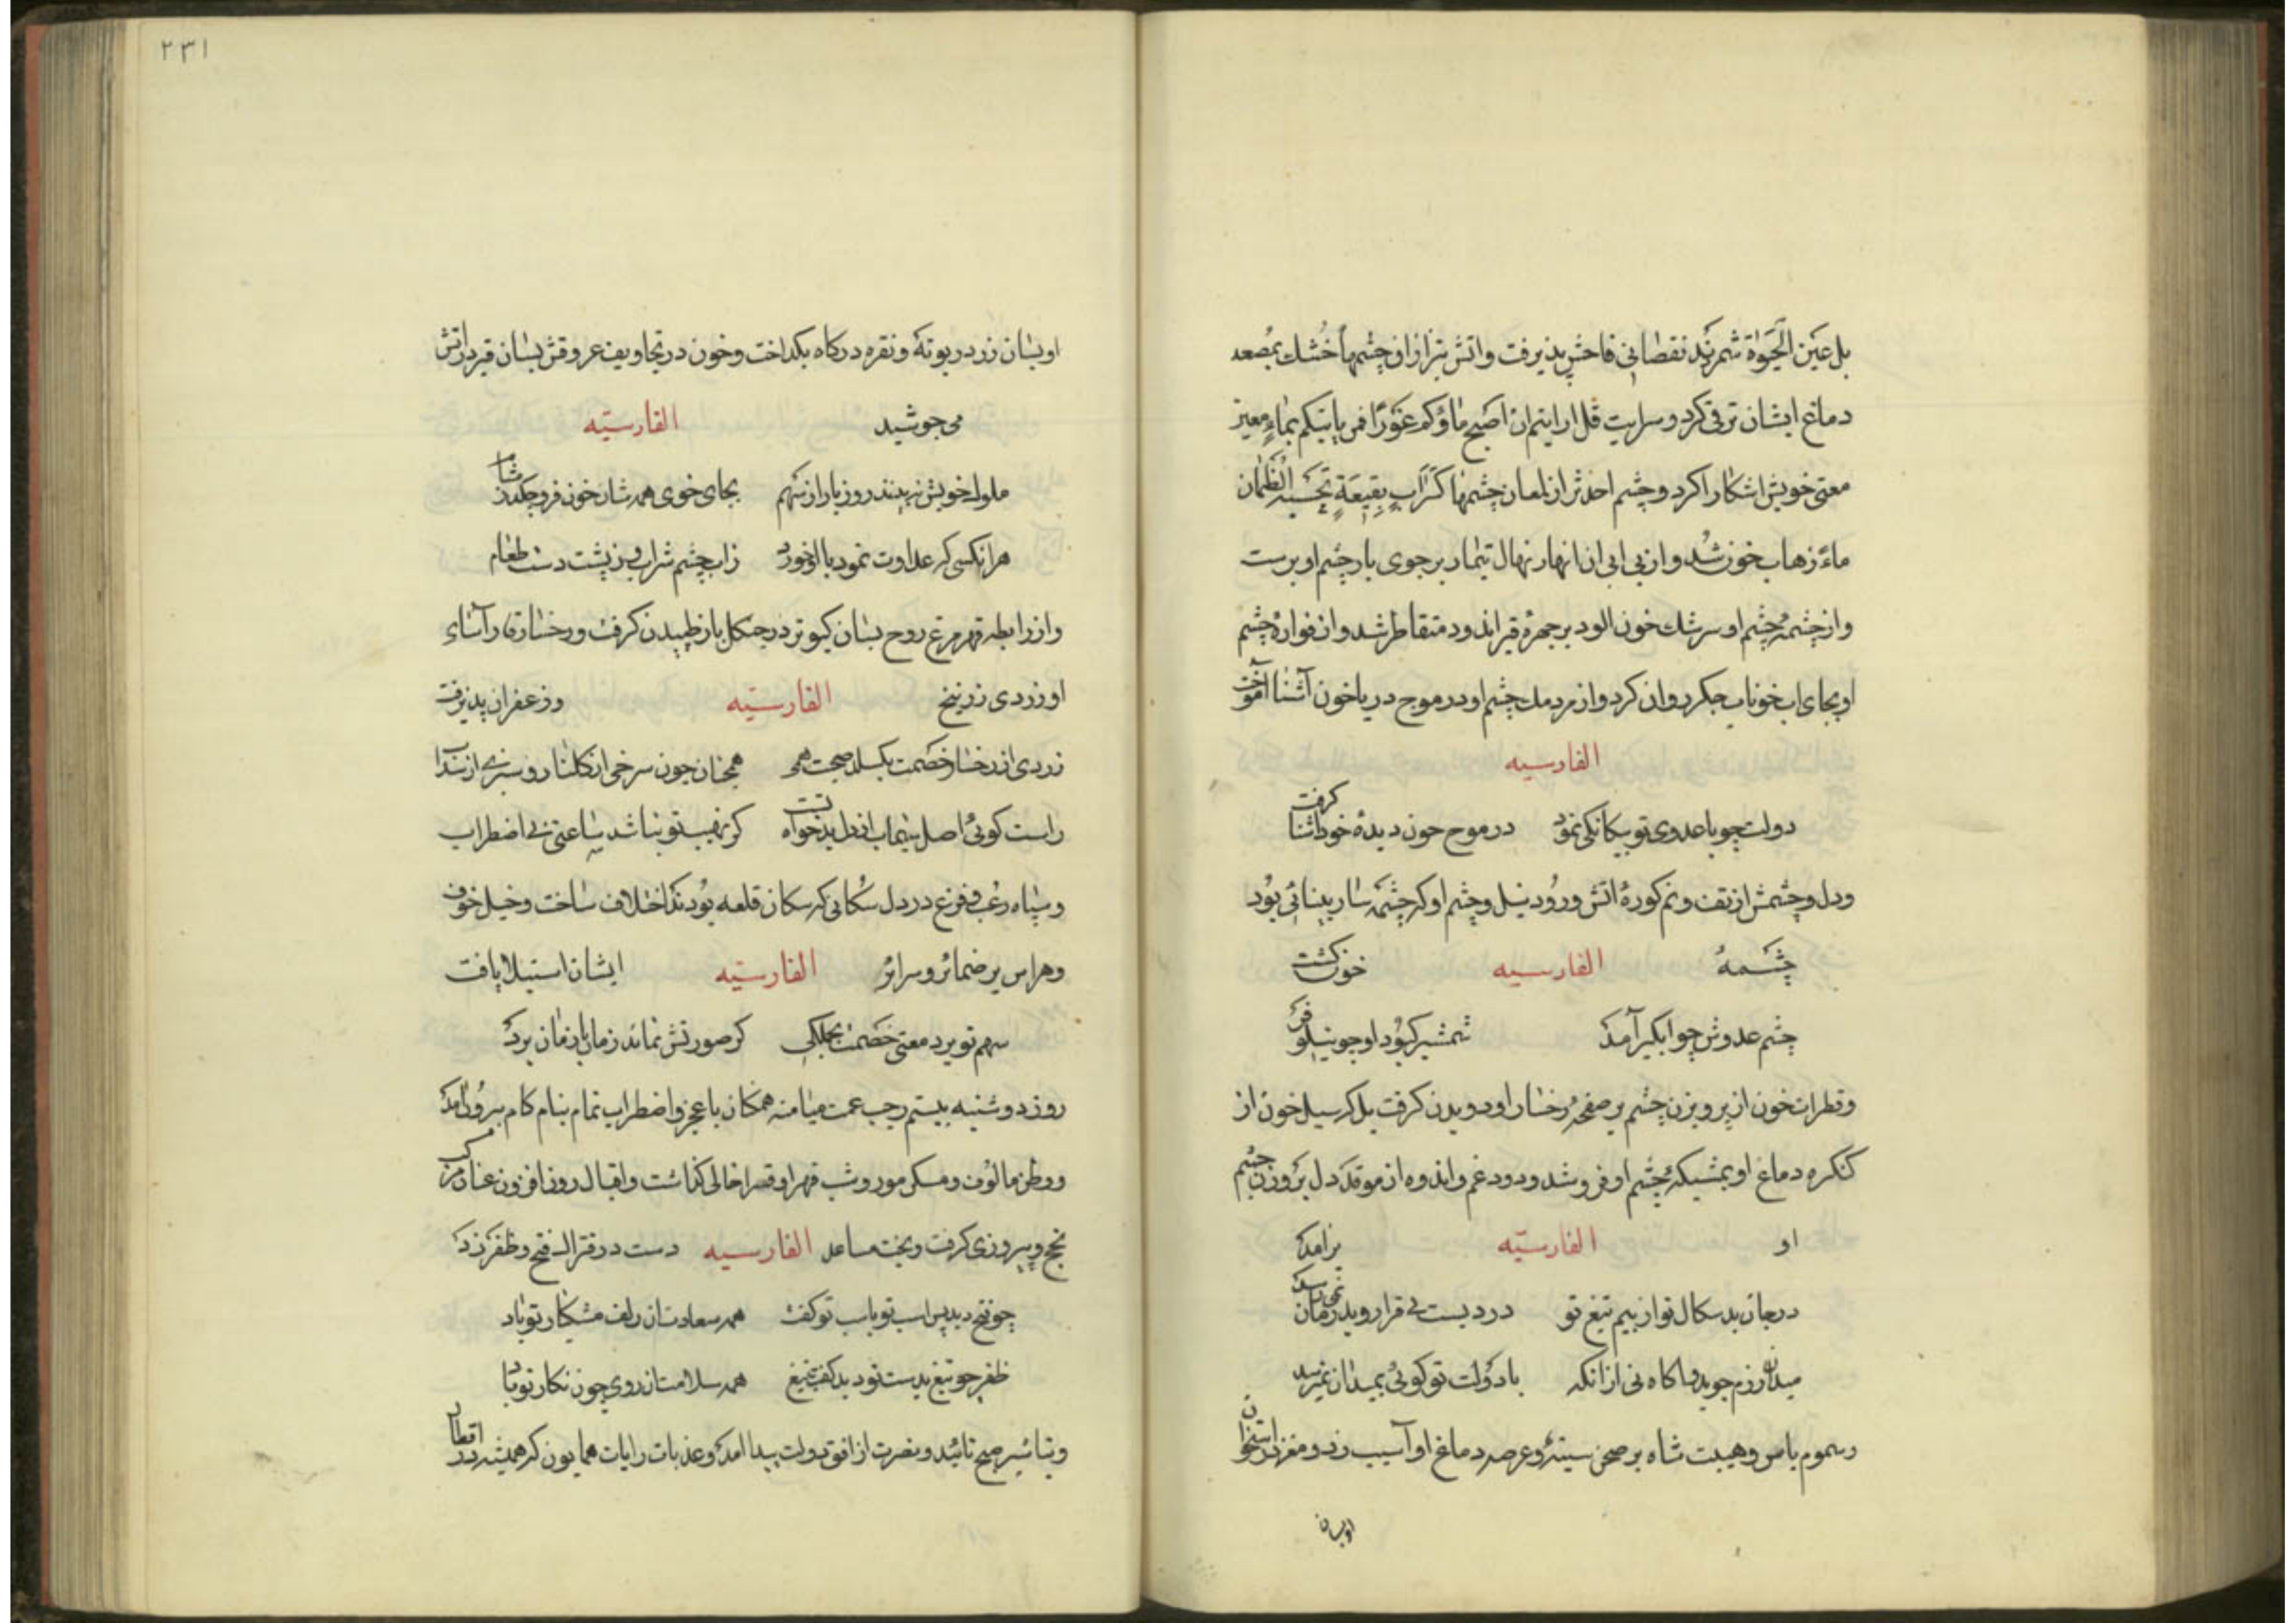 بل عین الحیوة شمرند نقصانی فاحش پذیرفت واتش تیز ازان چشمها خشك بمصعد
دماغ ایشان ترقی کرد وسرایت قل ارایتم ان اصبح ماؤکم غورا فمن یاتیکم بماء معین
معنی خویش اشکارا کرد وچشم از لمعان چشمها کسراب بقیعة یحسبه الظمان
ماء زهاب خون شد واز بی ابی ان انهار نهال تیمار بر جوی بار چشم او برست
واز چشمه چشم او سرشك خون الود بر چهرۀ قیر اندود متقاطر شد واز فوارۀ چشم
او بجای اب خوناب جکر روان کرد واز مردمك چشم او در موج دریا خون آشنا آموخت
الفارسیه
دولت چو با عدوی تو بیکانکی نمود در موج خون دیدۀ خود اشنا کرفت
ودل وچشمش از تف ونم کورۀ اتش ورود نیل وچشم او که چشمه سار بینائی بود
چشمهٔ الفارسیه خون کشت
چشم عدوش چو ابکیر آمد شمشیر کبود او چو نیلوفر
وقطرات خون از پرویزن چشم بر صفحهٔ رخسار او دویدن کرفت بل که سیل خون از
کنکره دماغ او بمشبکهٔ چشم او فرو شد ودود غم واندوه از موقد دل بروزن چشم
او الفارسیه برامد
در جان بدسکال تو از بیم تیغ تو دردیست بی قرار وبدرمان نمی رسد
میدان رزم جوید واکاه نی ازانکه با دولت تو کوئی بمیدان نمیرسد
وسموم باس وهیبت شاه بر صحن سینهٔ وعرصه دماغ او آسیب زد ومغز در استخوان
اوبسان
۲۳۱
اوبسان زر در بوتهٔ ونقره در کاه بکداخت وخون در تجاویف عروقش بسان قیر در اتش
می جوشید الفارسیه
ملوك خویش نه بینند روز بار از سهم بجای خوی همه شان خون فرو چکد ز مشام
هر انکسی که عداوت نمود با او خورد ز اب چشم شراب وز پشت دست طعام
واز رابطه قهر مرغ روح بسان کبوتر در چنکل باز طپیدن کرفت ورخساره آسای
او زردی زرنیخ الفارسیه وزعفران پذیرفت
زردی از رخسار خصمت نکسلد صحبت همی همچنان چون سرخی از کلنار وسبزی از سداب
راست کوئی اصل سیماب از دل بدخواه تست کز نهیب تو نباشد ساعتی بی اضطراب
وسپاه رعب وفزع در دل سکانی که سکان قلعه بودند اختلاف ساخت وخیل خوف
وهراس بر ضمائر وسرائر الفارسیه ایشان استیلا یافت
سهم تو برد معنی خصمت بجملکی کر صورتش نماند زمان تا زمان برد
روز دوشنبه بیستم رجب عمت میامنه همکان با عجز واضطراب تمام بنام کام بیرون امد
ووطن مالوف ومسکن موروث قهرا وقسرا خالی کذاشت واقبال روز افزون عنان مرکب
نجح وپیروزی کرفت وبخت مساعد الفارسیه دست در فتراك فتح وظفر زد
چو فتح دید پس اسب تو باب تو کفت همه سعادت ان زلف مشکبار تو باد
ظفر چو تیغ بدست تو دید کفت بتیغ همه سلامت ان روی چون نکار تو باد
وتباشیر صبح تائید ونصرت از افق دولت پیدا امد وعذبات رایات همایون که همیشه در اقطار